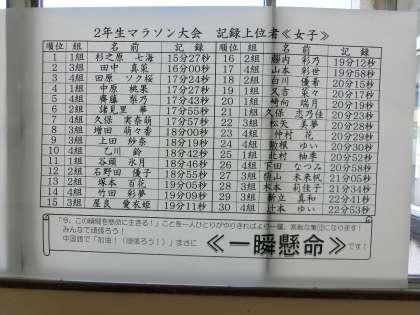 2年生マラソン大会 記録上位者《女子》
順位 組 名前 記録
1 1組 杉之原 七海 15分27秒
2 3組 田中 真菜 16分00秒
3 4組 田原 ソク桜 17分24秒
4 1組 中原 桃果 17分27秒
5 4組 齋藤 梨乃 17分43秒
6 2組 諸見里 華 17分55秒
7 4組 久保 実奈萌 17分57秒
8 3組 増田 萌々香 18分00秒
9 3組 上田 紗奈 18分19秒
10 4組 乙川 鈴 18分42秒
11 1組 谷頭 氷月 18分46秒
12 2組 石野田 優子 18分55秒
13 2組 塚本 百花 19分05秒
14 4組 竹田 彩夢 19分09秒
15 3組 屋良 愛衣姫 19分11秒
順位 組 名前 記録
16 2組 藤内 彩乃 19分12秒
17 4組 山本 彩世 19分58秒
18 2組 白川 優希 20分15秒
19 1組 久吉 菜々 20分17秒
20 1組 崎向 瑞月 20分19秒
21 1組 久保 志乃佳 20分23秒
22 3組 松矢 美夢 20分28秒
23 4組 仲村 花 20分29秒
24 4組 散根 ゆい 20分30秒
25 1組 北村 柚季 20分52秒
26 4組 下田 なつみ 20分58秒
27 3組 横山 未来帆 21分05秒
28 3組 木本 莉佳子 21分34秒
29 3組 新立 真和 22分41秒
30 4組 辻本 ゆい 22分53秒
「今、この瞬間を懸命に生きる!」ことを一人ひとりがやりきればより一層、素敵な集団になります!
みんなで頑張ろう!
中国語で「加油!(頑張ろう!)」まさに《一瞬懸命》です!